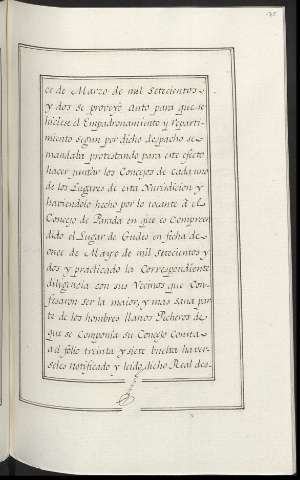 ce de Marzo de mil Setecientos
y dos se proveyó Auto para que se
hiciese el Empadronamiento y repartimiento
miento segun por dicho despacho se
mandaba protestando para este efecto
hacer juntar los Concejos de cada uno
de los Lugares de esta Jurisdicion y
haviendolo hecho por lo tocante á el
Concejo de Parada en que es Compreen
dido el Lugar de Gudes en fecha de
once de Mayo de mil setecientos y
dos y practicado la Correspondiente
diligencia con sus Vecinos que Con-
fesaron ser la maior, y mas sana par
te de los hombres llanos Pecheros de
que se Componia su Concejo Consta
a el folio treinta y siete buelta haver-
seles notificado y leido, dicho Real des-